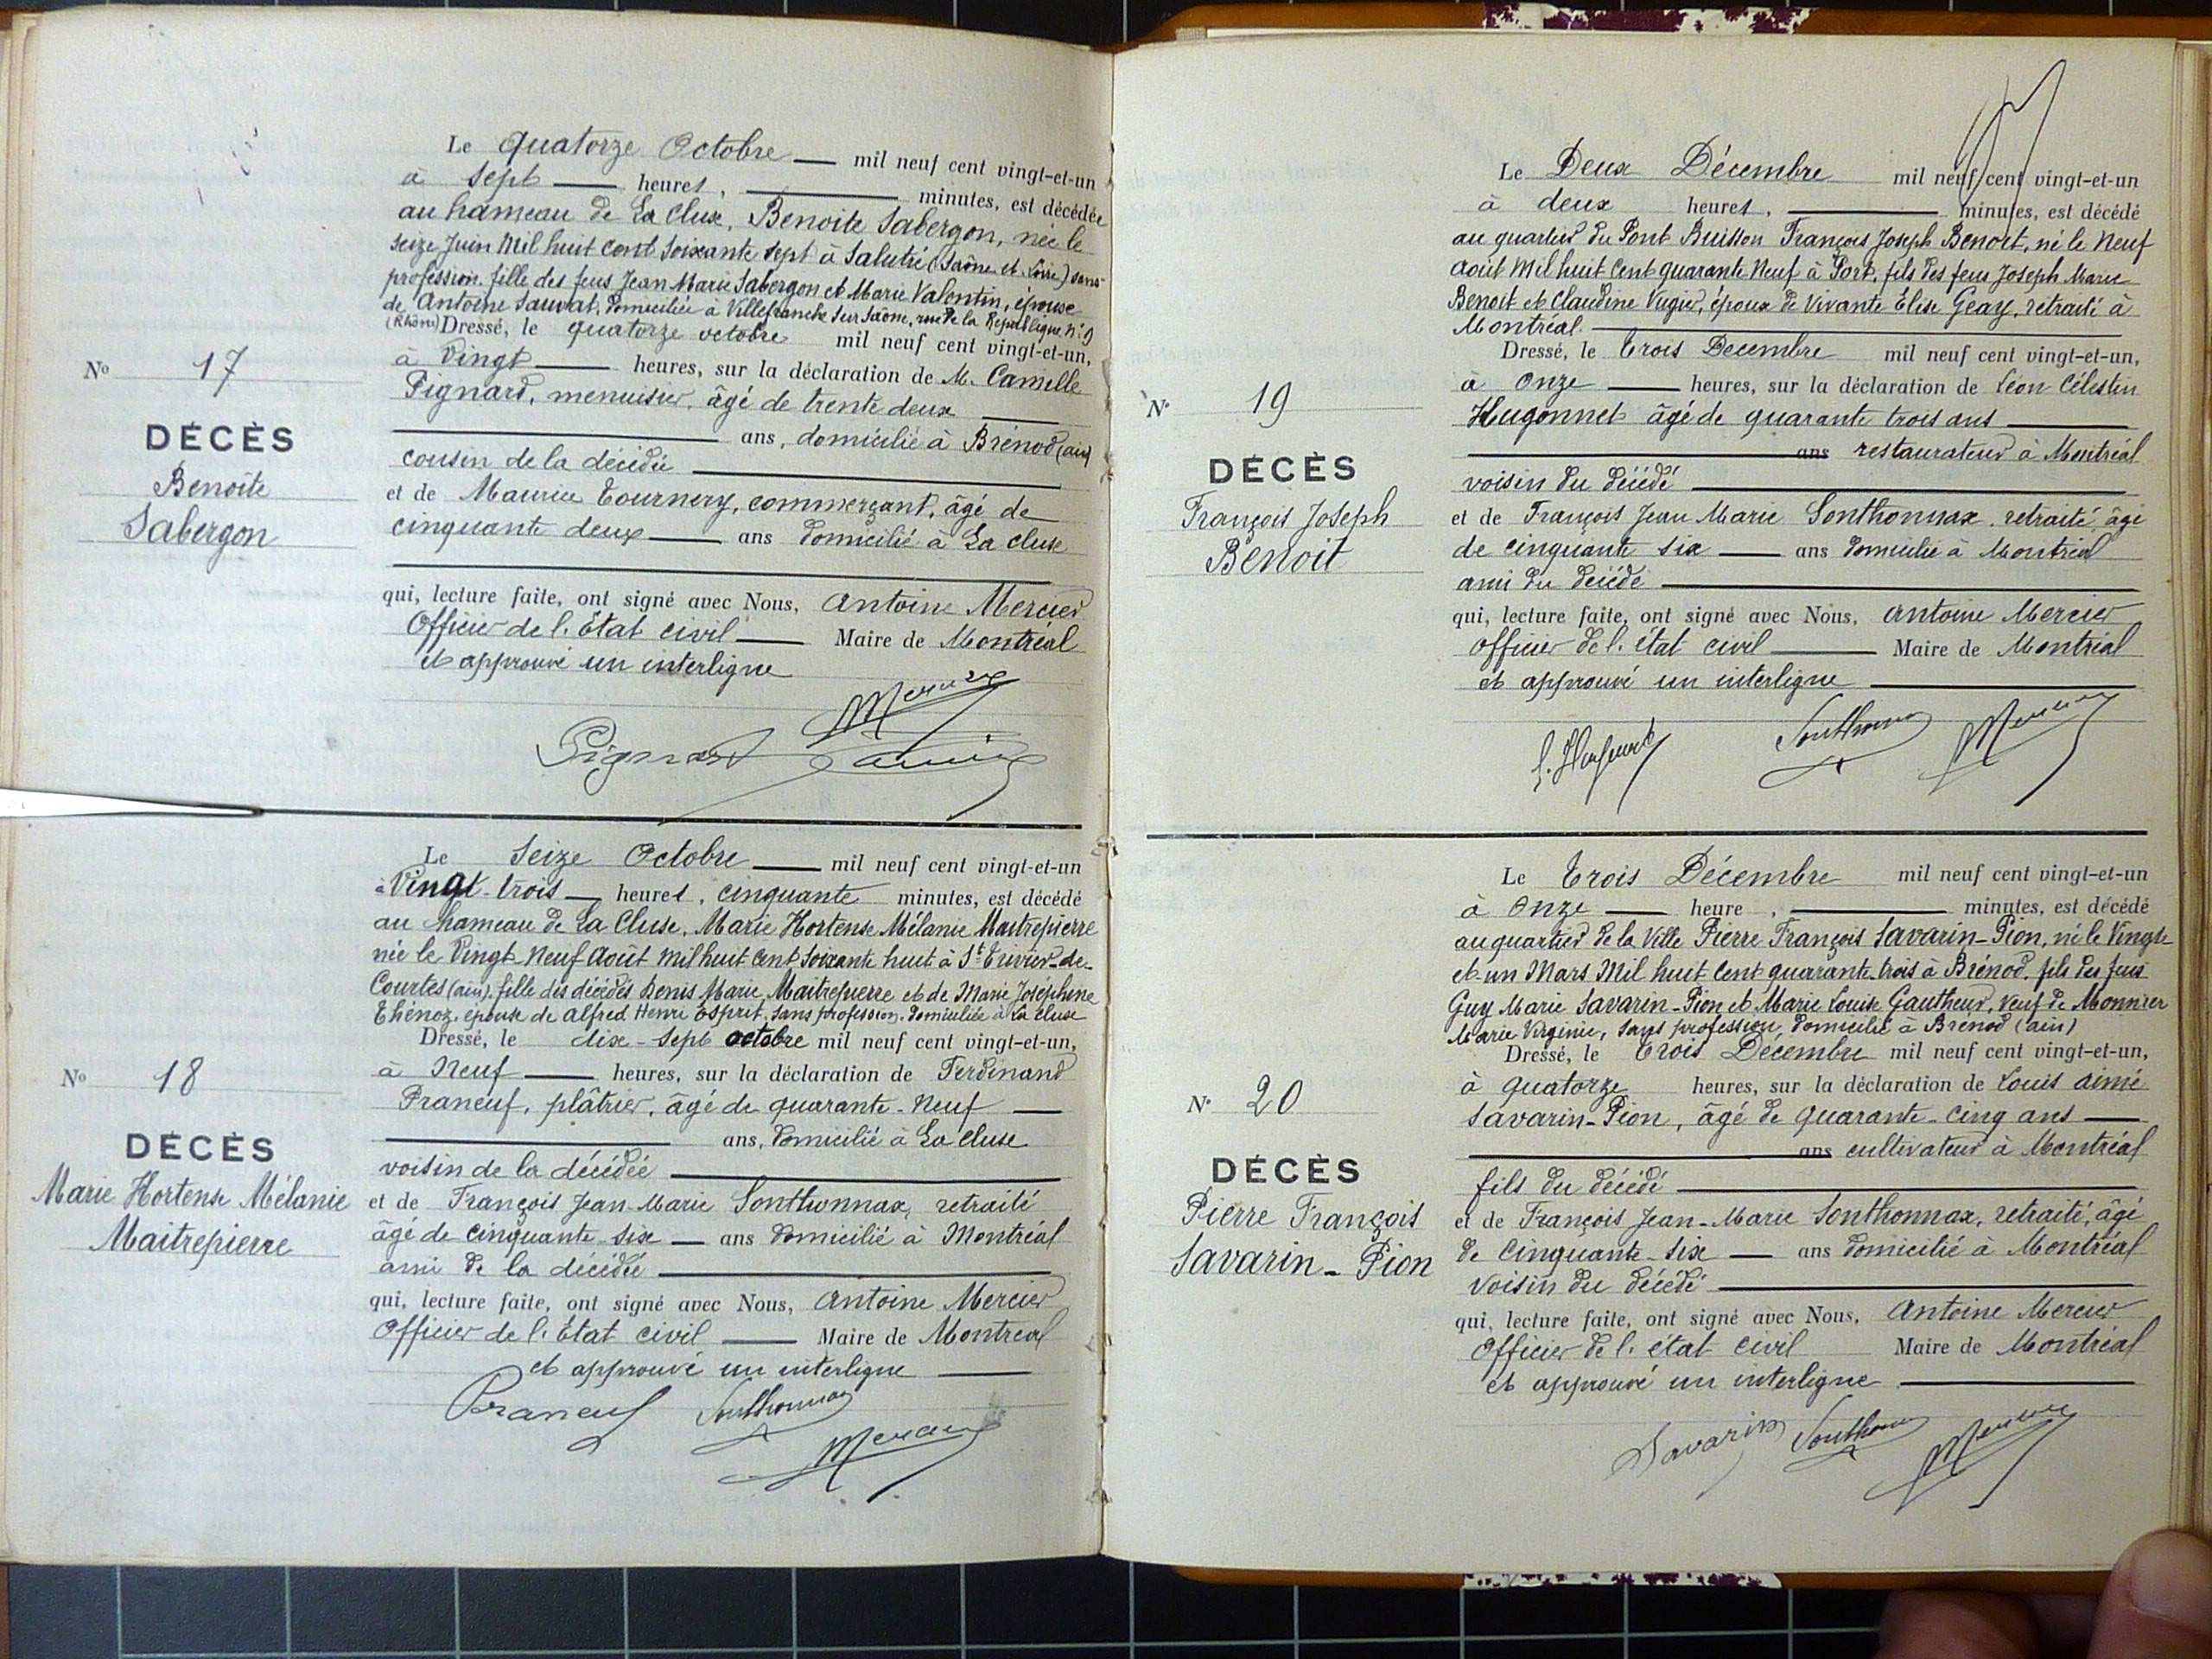 Le quatorze Octobre — mil neuf cent vingt-et-un
à sept — heures, — minutes, est décédée
au hameau de La Cluse, Benoite Sabergon, née le
seize Juin Mil huit cent soixante sept à Salutré (Saône et Loire) sans
profession, fille des feus Jean Marie Sabergon et Marie Valentin, épouse
de Antoine Sauvat, domiciliée à Villefranche sur Saône, rue de la République N° 9
(Rhône) Dressé, le quatorze octobre mil neuf cent vingt-et-un,
à Vingt — heures, sur la déclaration de M. Camille
Pignard, menuisier, âgé de trente deux —
— ans, domicilié à Brénod (ain)
cousin de la décédée —
et de Maurice Tournery, commerçant, âgé de
cinquante deux — ans domicilié à La cluse
qui, lecture faite, ont signé avec Nous, Antoine Mercier
Officier de l'État civil — Maire de Montréal
et approuvé un interligne
Mercier
Pignard
N° 17
DÉCÈS
Benoîte
Sabergon
Le Seize Octobre — mil neuf cent vingt-et-un
à Vingt-trois — heures, cinquante minutes, est décédé
au hameau de La Cluse, Marie Hortense Mélanie Maitrepierre
née le Vingt Neuf Août Mil huit Cent Soixante huit à St Trivier-de-
Courtes (ain), fille des décédés Denis Marie Maitrepierre et de Marie Joséphine
Thénoz, épouse de Alfred Henri Esprit, sans profession, domiciliée à La Cluse
Dressé, le dix-sept octobre mil neuf cent vingt-et-un,
à Neuf — heures, sur la déclaration de Ferdinand
Praneuf, plâtrier, âgé de quarante-Neuf —
— ans, domicilié à La Cluse
voisin de la décédée —
et de François Jean Marie Sonthonnax, retraité
âgé de cinquante-six — ans domicilié à Montréal
ami de la décédée —
qui, lecture faite, ont signé avec Nous, Antoine Mercier
Officier de l'État civil — Maire de Montréal
et approuvé un interligne —
Praneuf Sonthonnax
Mercier
N° 18
DÉCÈS
Marie Hortense Mélanie
Maitrepierre
Le Deux Décembre mil neuf cent vingt-et-un
à deux heures, — minutes, est décédé
au quartier du Pont Buisson François Joseph Benoit, né le Neuf
Août Mil huit Cent quarante Neuf à Port, fils des feus Joseph Marie
Benoit et Claudine Vugier, époux de Vivante Élise Geay, retraité à
Montréal. —
Dressé, le Trois Decembre mil neuf cent vingt-et-un,
à Onze — heures, sur la déclaration de Léon Célestin
Hugonnet âgé de quarante trois ans —
— ans restaurateur à Montréal
voisin du décédé —
et de François Jean Marie Sonthonnax, retraité âgé
de cinquante six — ans domicilié à Montréal
ami du décédé —
qui, lecture faite, ont signé avec Nous, Antoine Mercier
Officier de l'état civil — Maire de Montréal
et approuvé un interligne —
Sonthonnax Mercier
N° 19
DÉCÈS
François Joseph
Benoit
Le Trois Décembre mil neuf cent vingt-et-un
à Onze — heure, — minutes, est décédé
au quartier de la Ville Pierre François Savarin-Pion, né le Vingt-
et-un Mars Mil huit Cent quarante-trois à Brénod, fils des feus
Guy Marie Savarin-Pion et Marie Louise Gautheur, Veuf de Monnier
Marie Virginie, Sans profession, domicilié à Brénod (ain)
Dressé, le Trois Décembre mil neuf cent vingt-et-un,
à quatorze heures, sur la déclaration de Louis aimé
Savarin-Pion, âgé de quarante-cinq ans —
— ans cultivateur à Montréal
fils du décédé —
et de François Jean-Marie Sonthonnax, retraité, âgé
de Cinquante-six — ans domicilié à Montréal
voisin du décédé —
qui, lecture faite, ont signé avec Nous, Antoine Mercier
Officier de l'état civil Maire de Montréal
et approuvé un interligne —
Savarin Sonthonnax Mercier
N° 20
DÉCÈS
Pierre François
Savarin-Pion